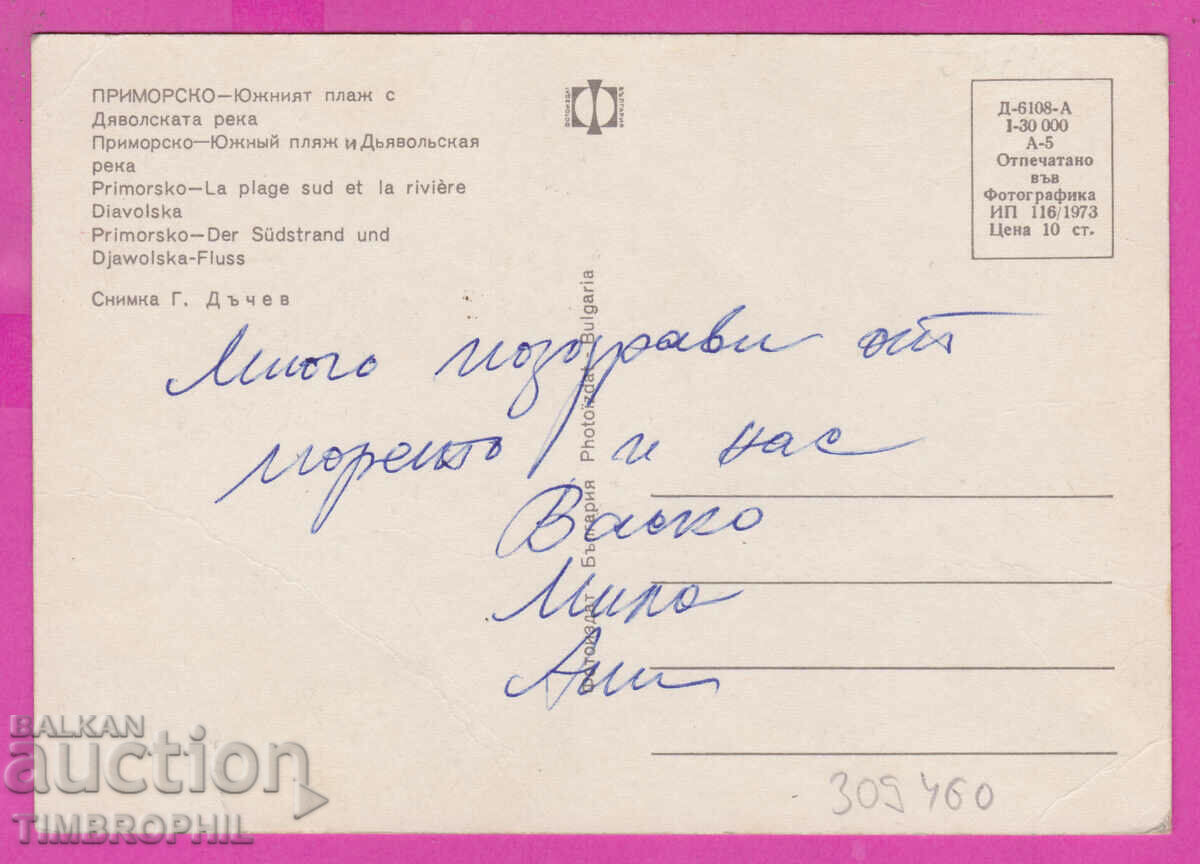 ПРИМОРСКО—Южният плаж с
Дяволската река
Приморско—Южный пляж и Дьявольская
река
Primorsko—La plage sud et la rivière
Diavolska
Primorsko—Der Südstrand und
Djawolska-Fluss
Снимка Г. Дъчев
ФОТОИЗДАТ
БЪЛГАРИЯ
Д-6108-А
1-30 000
А-5
Отпечатано
във
Фотографика
ИП 116/1973
Цена 10 ст.
Фотоиздат - България Photoïzdat - Bulgaria
Много поздрави от
морето и нас
Васко
Мира
Ани
309460
BALKAN
auction
TIMBROPHIL